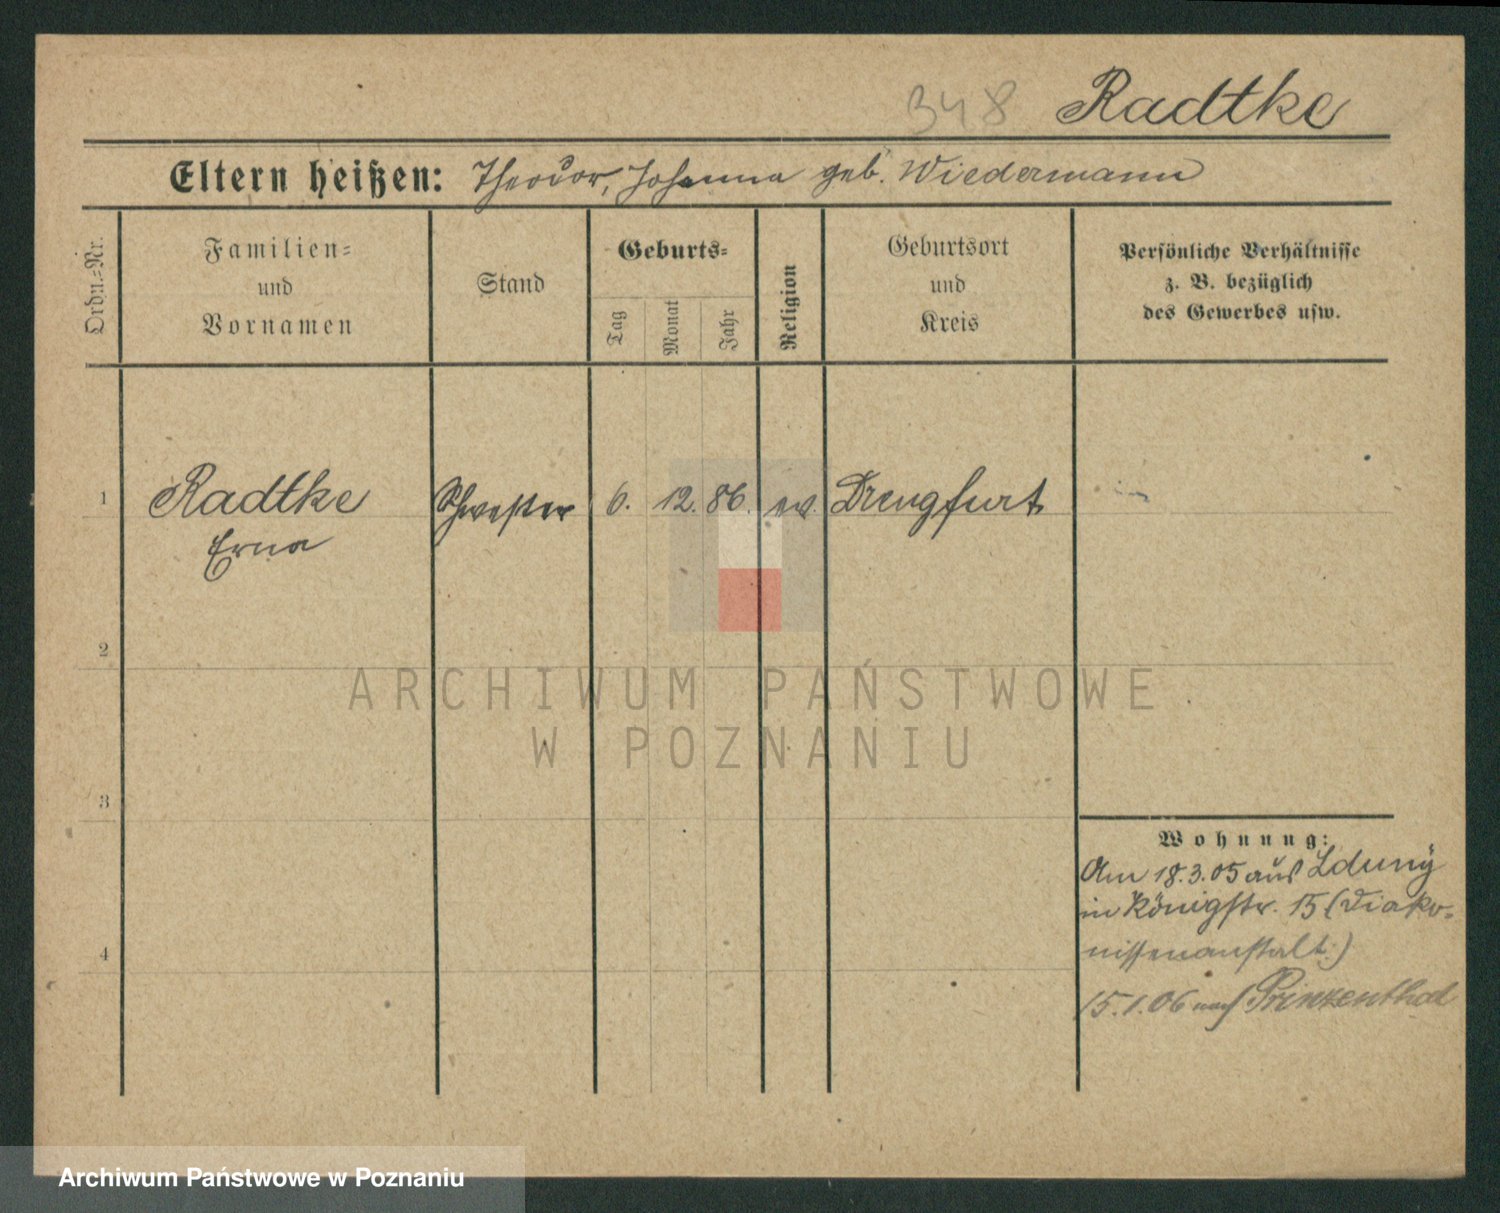 348 Radtke
Eltern heißen: Theodor, Johanna geb. Wiedermann
Ordn.=Nr.
Familien=
und
Vornamen
Stand
Geburts=
Tag
Monat
Jahr
Religion
Geburtsort
und
Kreis
Persönliche Verhältnisse
z. B. bezüglich
des Gewerbes usw.
1 Radtke Schwester 6. 12. 86. ev. Drengfurt
Erna
2
3
4
Wohnung:
Am 18.3.05 aus Zduny
in Königstr. 15 (Diako=
nissenanstalt.)
15.1.06 nach Prinzenthal
ARCHIWUM PAŃSTWOWE
W POZNANIU
Archiwum Państwowe w Poznaniu